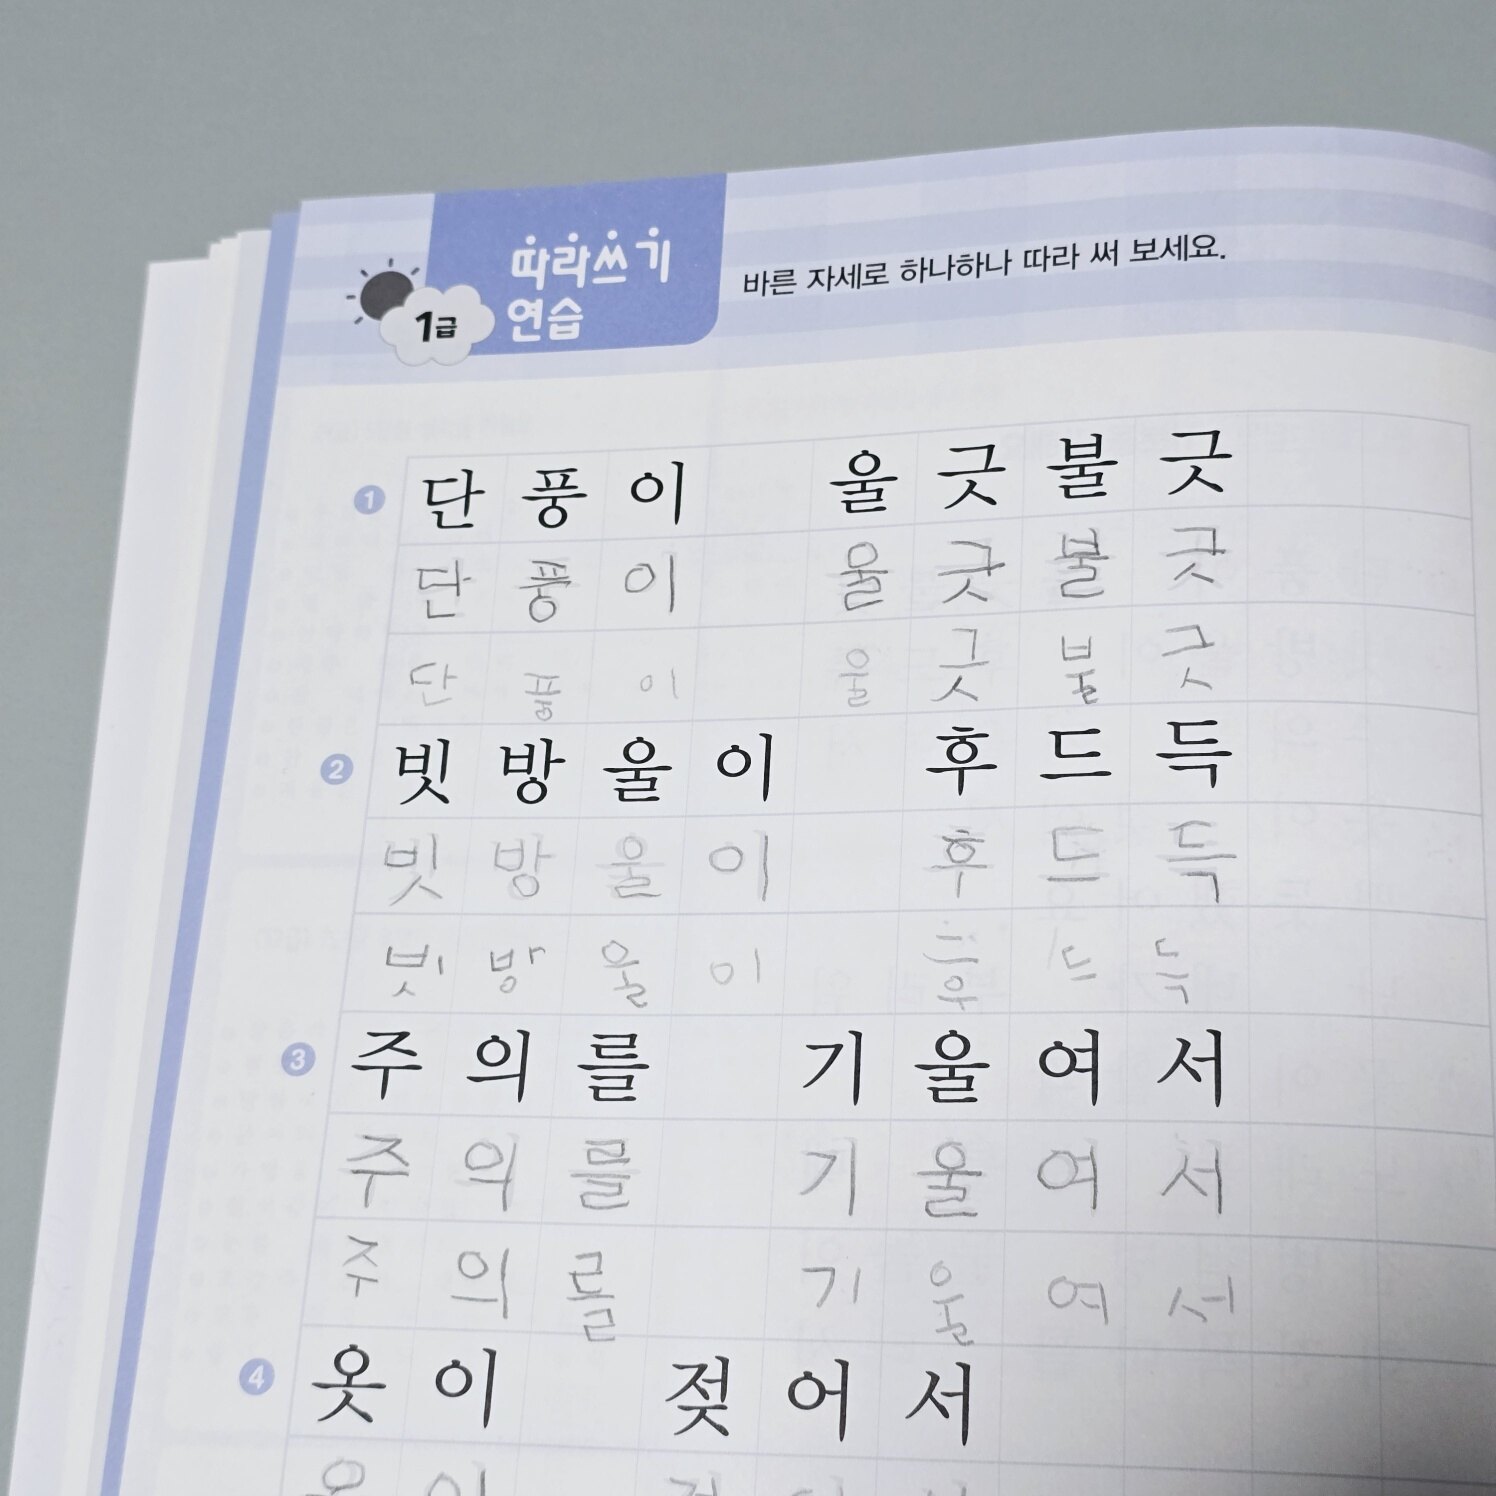 따라쓰기
연습
1급
바른 자세로 하나하나 따라 써 보세요.
1 단풍이 울긋불긋
단풍이 울긋불긋
단풍이 울긋불긋
2 빗방울이 후드득
빗방울이 후드득
빗방울이 후드득
3 주의를 기울여서
주의를 기울여서
주의를 기울여서
4 옷이 젖어서